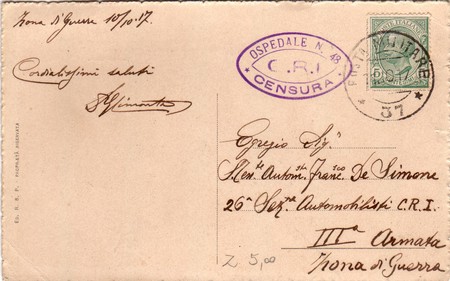 Zona di Guerra 10/10.17
Cordialissimi saluti
OSPEDALE N. 48
C.R.I.
CENSURA
POSTA MILITARE
37
Egregio Sigʳ
Automᵗᵃ Francᶜᵒ De Simone
26ª Sezⁿᵉ Automobilisti C.R.I.
IIIª Armata
Zona di Guerra
Z 5,00